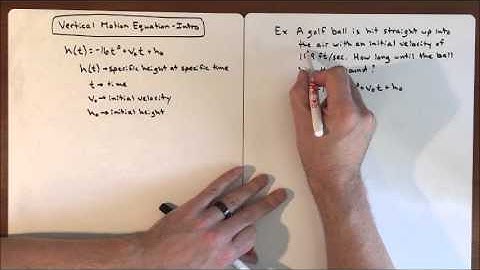 Vertical Motion Equation - Intro
h(t) = -16t² + v₀t + h₀
h(t) → specific height at specific time
t → time
v₀ → initial velocity
h₀ → initial height
Ex A golf ball is hit straight up into
the air with an initial velocity of
ft/sec. How long until the ball
+ v₀t + h₀